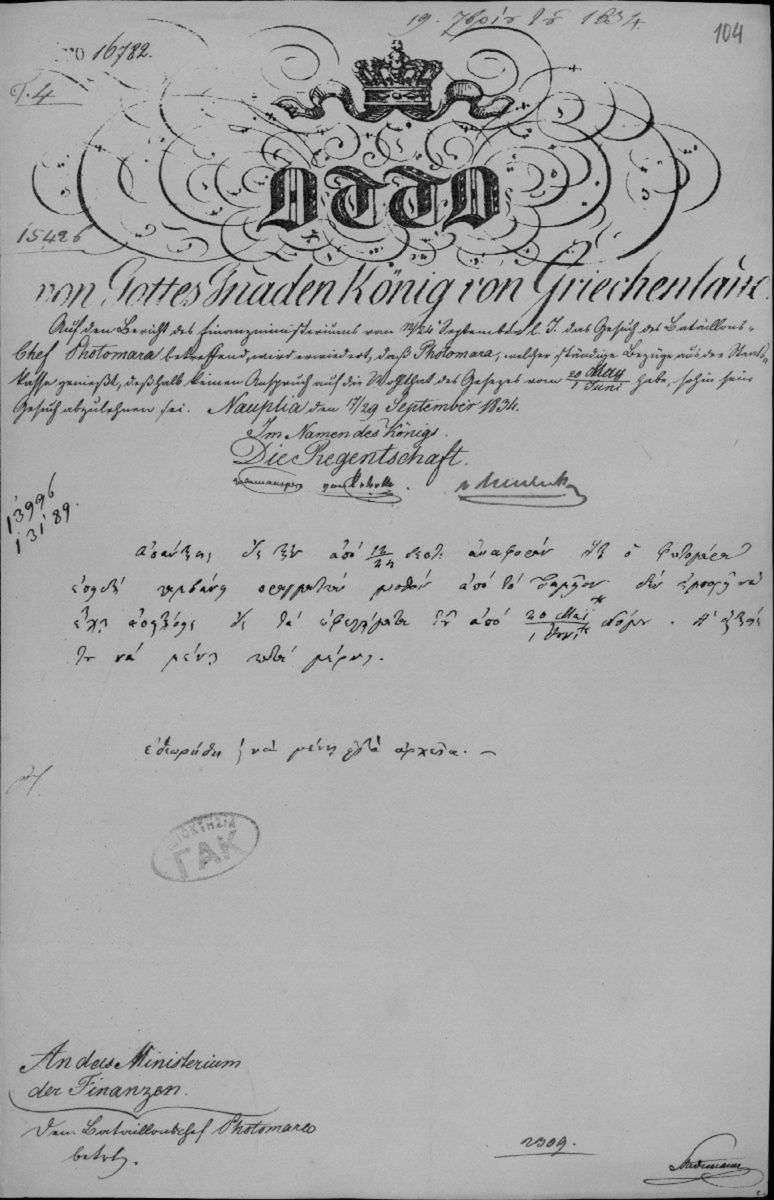 19. 7βρίου τοῦ 1834.
104
No 16782.
T. 4
OTTO
15426
von Gottes Gnaden König von Griechenland.
Auf den Bericht des Finanzministeriums vom 12/24 September l. J. das Gesuch des Bataillons-
Chef Photomara betreffend, wird erwiedert, daß Photomara, welcher ständige Bezüge aus der Staats-
kasse genießt, deßhalb keinen Anspruch auf die Wohlthat des Gesezes vom 20 May / 1 Juni habe, sohin sein
Gesuch abzulehnen sei. Nauplia den 17/29 September 1834.
Im Namen des Königs.
Die Regentschaft.
13996
13189.
ἀπὸ 12/24 ἀναφορὰν ὁ Φωτομάρα
μισθὸν ἀπὸ τὸ δὲν ἠμπορῇ νὰ
ἔχῃ τὰ ἀπὸ 20 Mai / 1 Juni νόμου. Ἡ
του νὰ μένῃ κατὰ μέρος.
ἐθεωρήθη νὰ μένῃ ἀρχεῖα.
ΙΔΙΟΚΤΗΣΙΑ
ΓΑΚ
An das Ministerium
der Finanzen.
Den Bataillonschef Photomara
betrf.
2309.